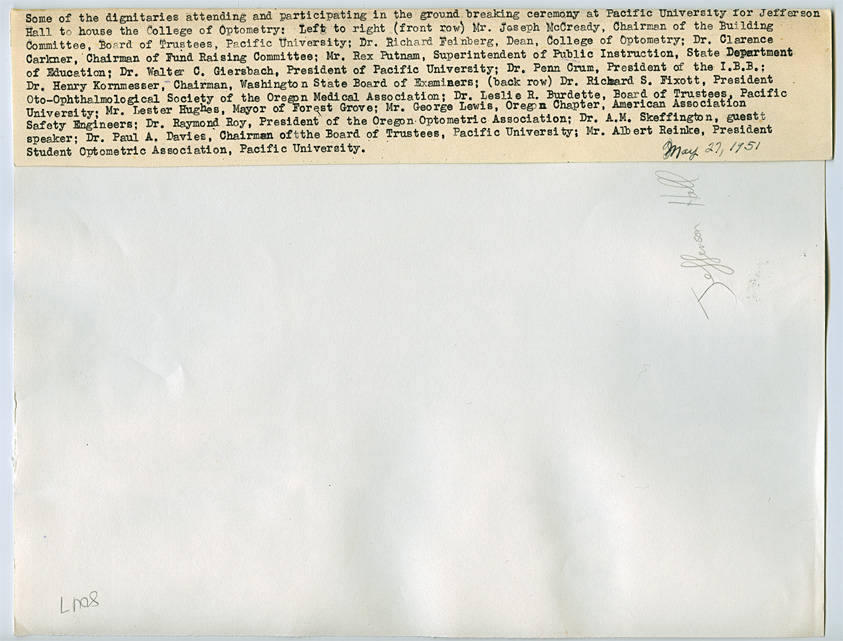 Some of the dignitaries attending and participating in the ground breaking ceremony at Pacific University for Jefferson
Hall to house the College of Optometry: Left to right (front row) Mr. Joseph McCready, Chairman of the Building
Committee, Board of Trustees, Pacific University; Dr. Richard Feinberg, Dean, College of Optometry; Dr. Clarence
Carkner, Chairman of Fund Raising Committee; Mr. Rex Putnam, Superintendent of Public Instruction, State Department
of Education; Dr. Walter C. Giersbach, President of Pacific University; Dr. Penn Crum, President of the I.B.B.;
Dr. Henry Kornmesser, Chairman, Washington State Board of Examiners; (back row) Dr. Richard S. Fixott, President
Oto-Ophthalmological Society of the Oregon Medical Association; Dr. Leslie R. Burdette, Board of Trustees, Pacific
University; Mr. Lester Hughes, Mayor of Forest Grove; Mr. George Lewis, Oregon Chapter, American Association
Safety Engineers; Dr. Raymond Roy, President of the Oregon Optometric Association; Dr. A.M. Skeffington, guest
speaker; Dr. Paul A. Davies, Chairman of the Board of Trustees, Pacific University; Mr. Albert Reinke, President
Student Optometric Association, Pacific University.
May 27, 1951
Jefferson Hall